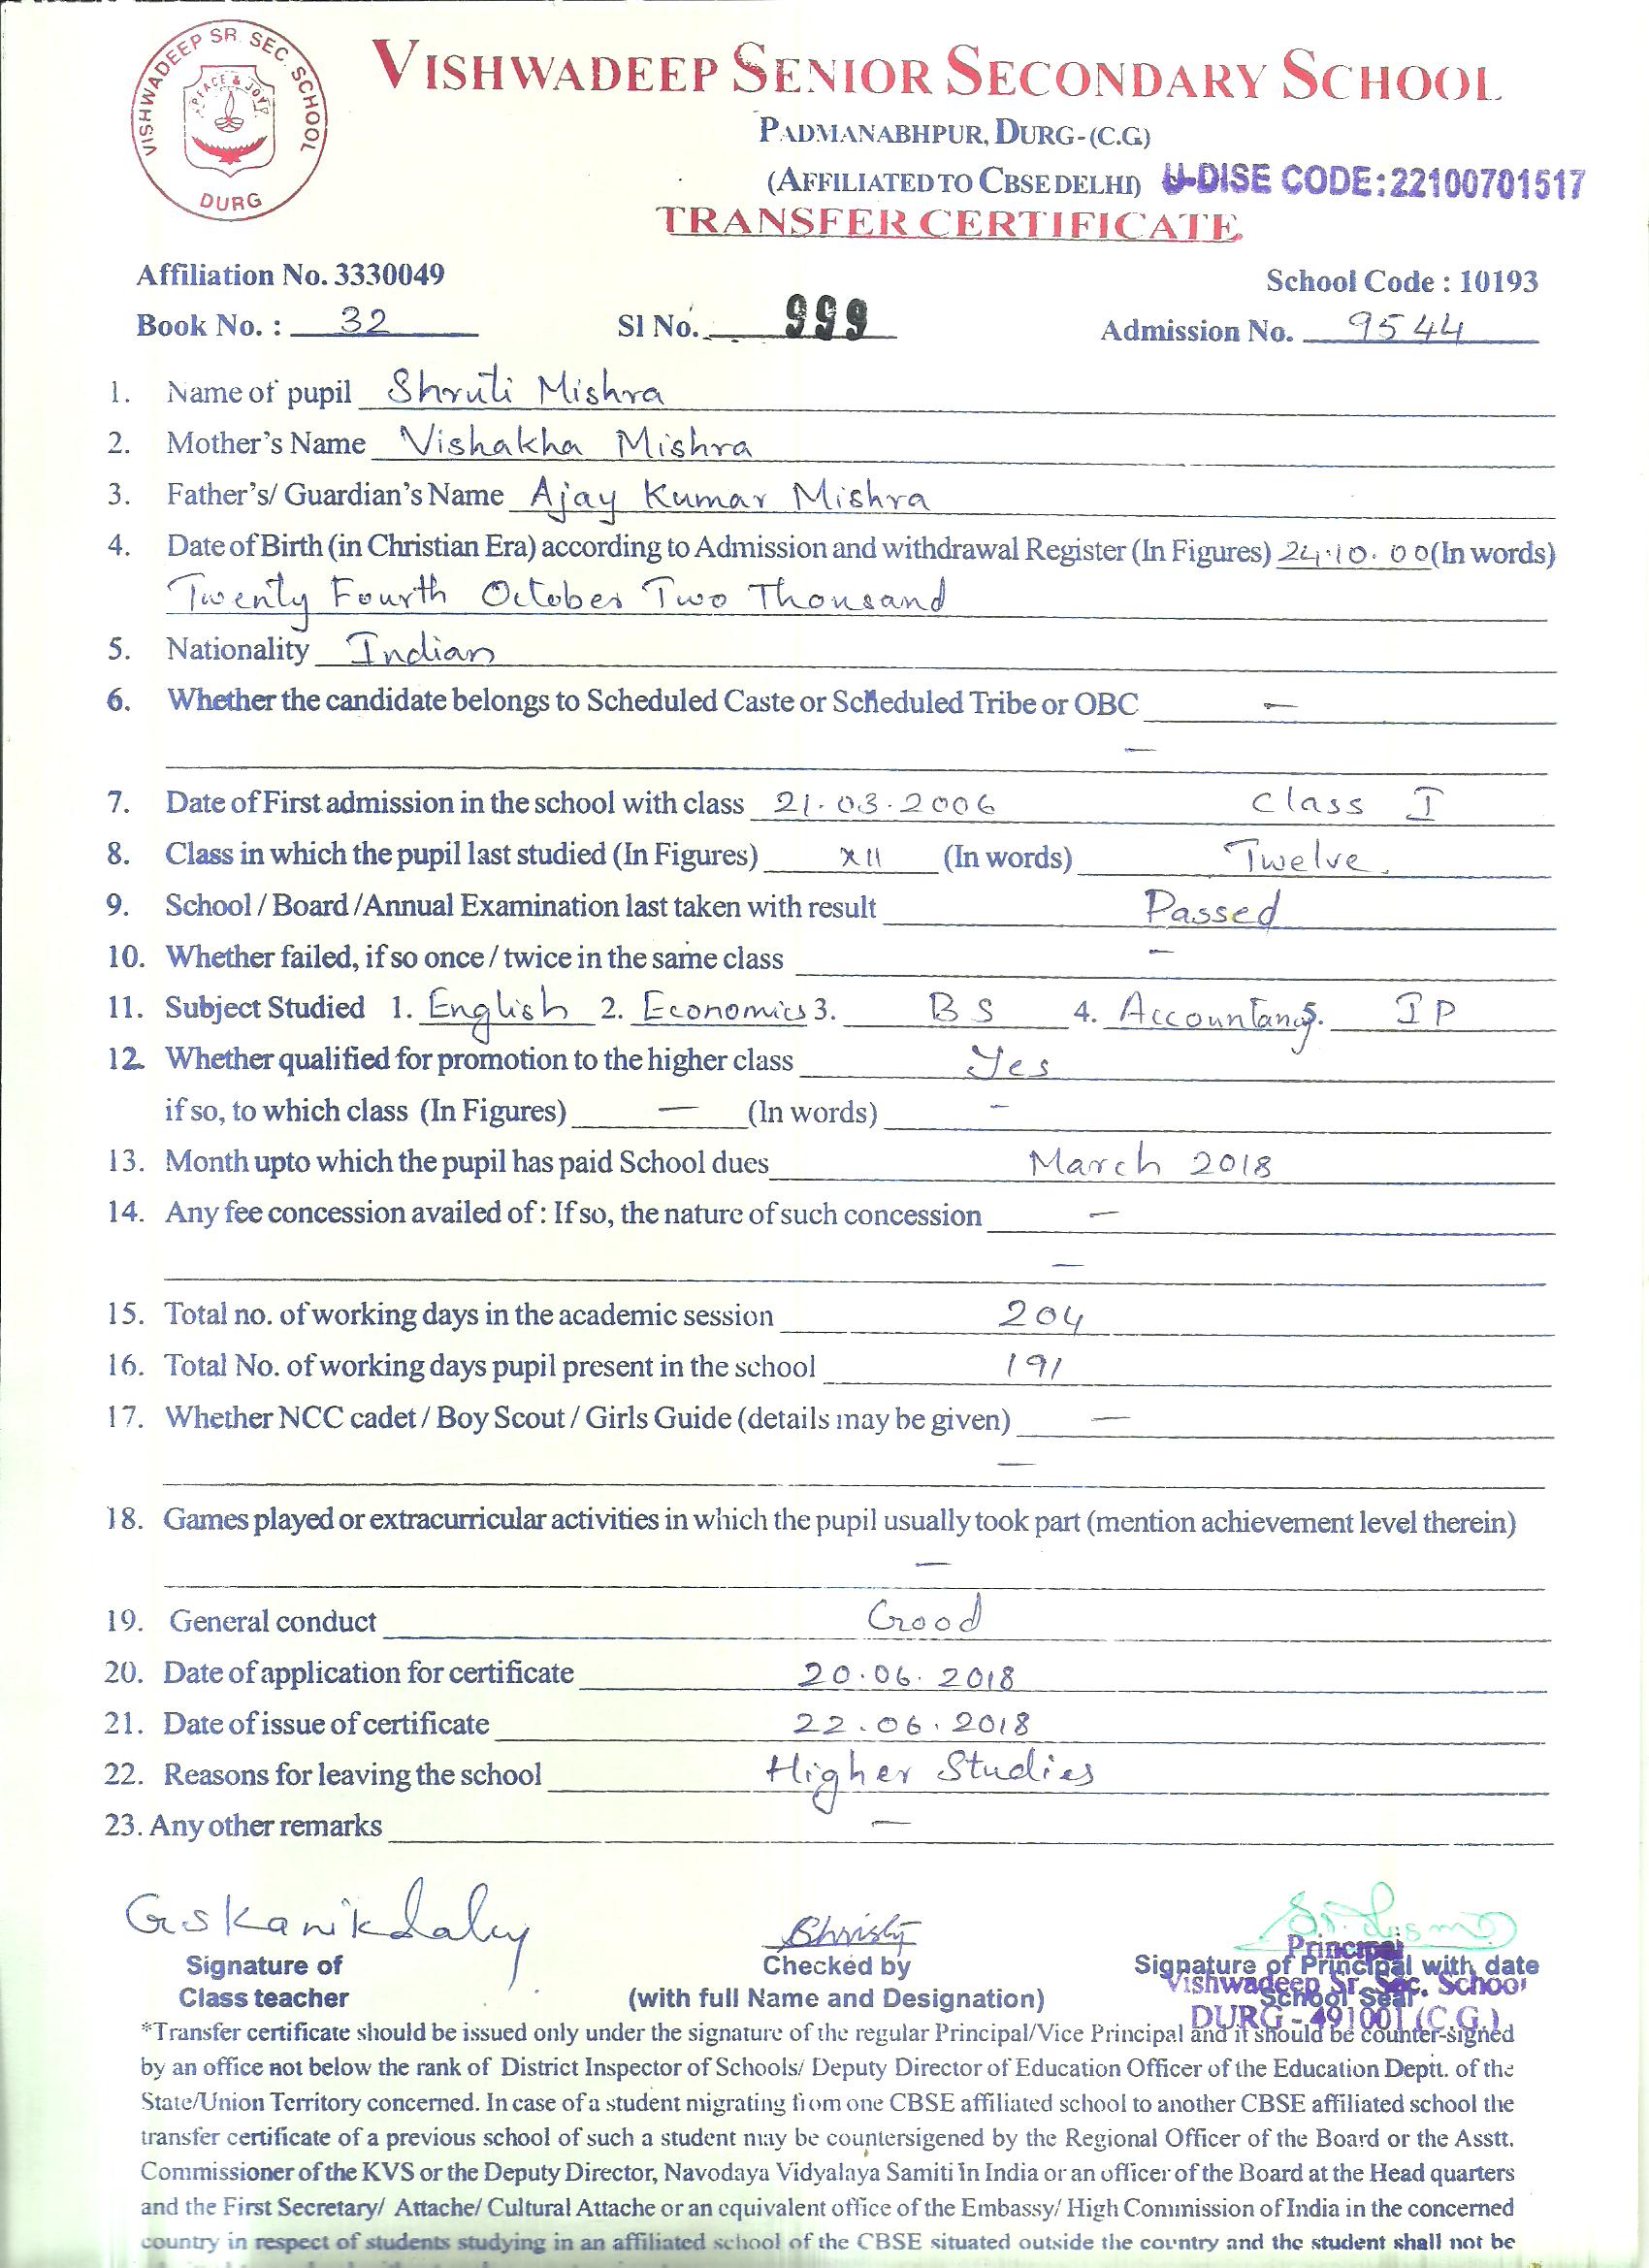 VISHWADEEP SR. SEC. SCHOOL
PEACE & JOY
DURG
VISHWADEEP SENIOR SECONDARY SCHOOL
PADMANABHPUR, DURG-(C.G)
(AFFILIATED TO CBSE DELHI) U-DISE CODE:22100701517
TRANSFER CERTIFICATE
Affiliation No. 3330049 School Code : 10193
Book No. : 32 Sl No. 999 Admission No. 9544
1. Name of pupil Shruti Mishra
2. Mother's Name Vishakha Mishra
3. Father's/ Guardian's Name Ajay Kumar Mishra
4. Date of Birth (in Christian Era) according to Admission and withdrawal Register (In Figures) 24.10.00 (In words)
Twenty Fourth October Two Thousand
5. Nationality Indian
6. Whether the candidate belongs to Scheduled Caste or Scheduled Tribe or OBC —
—
7. Date of First admission in the school with class 21.03.2006 Class I
8. Class in which the pupil last studied (In Figures) XII (In words) Twelve.
9. School / Board /Annual Examination last taken with result Passed
10. Whether failed, if so once / twice in the same class —
11. Subject Studied 1. English 2. Economics 3. BS 4. Accountancy 5. IP
12. Whether qualified for promotion to the higher class Yes
if so, to which class (In Figures) — (In words) —
13. Month upto which the pupil has paid School dues March 2018
14. Any fee concession availed of : If so, the nature of such concession —
—
15. Total no. of working days in the academic session 204
16. Total No. of working days pupil present in the school 191
17. Whether NCC cadet / Boy Scout / Girls Guide (details may be given) —
—
18. Games played or extracurricular activities in which the pupil usually took part (mention achievement level therein)
—
19. General conduct Good
20. Date of application for certificate 20.06.2018
21. Date of issue of certificate 22.06.2018
22. Reasons for leaving the school Higher Studies
23. Any other remarks —
Christy
Principal
Signature of Checked by Signature of Principal with date
Vishwadeep Sr. Sec. School
Class teacher (with full Name and Designation) School Seal
DURG - 491001 (C.G.)
*Transfer certificate should be issued only under the signature of the regular Principal/Vice Principal and it should be counter-signed
by an office not below the rank of District Inspector of Schools/ Deputy Director of Education Officer of the Education Deptt. of the
State/Union Territory concerned. In case of a student migrating from one CBSE affiliated school to another CBSE affiliated school the
transfer certificate of a previous school of such a student may be countersigened by the Regional Officer of the Board or the Asstt.
Commissioner of the KVS or the Deputy Director, Navodaya Vidyalaya Samiti in India or an officer of the Board at the Head quarters
and the First Secretary/ Attache/ Cultural Attache or an equivalent office of the Embassy/ High Commission of India in the concerned
country in respect of students studying in an affiliated school of the CBSE situated outside the country and the student shall not be